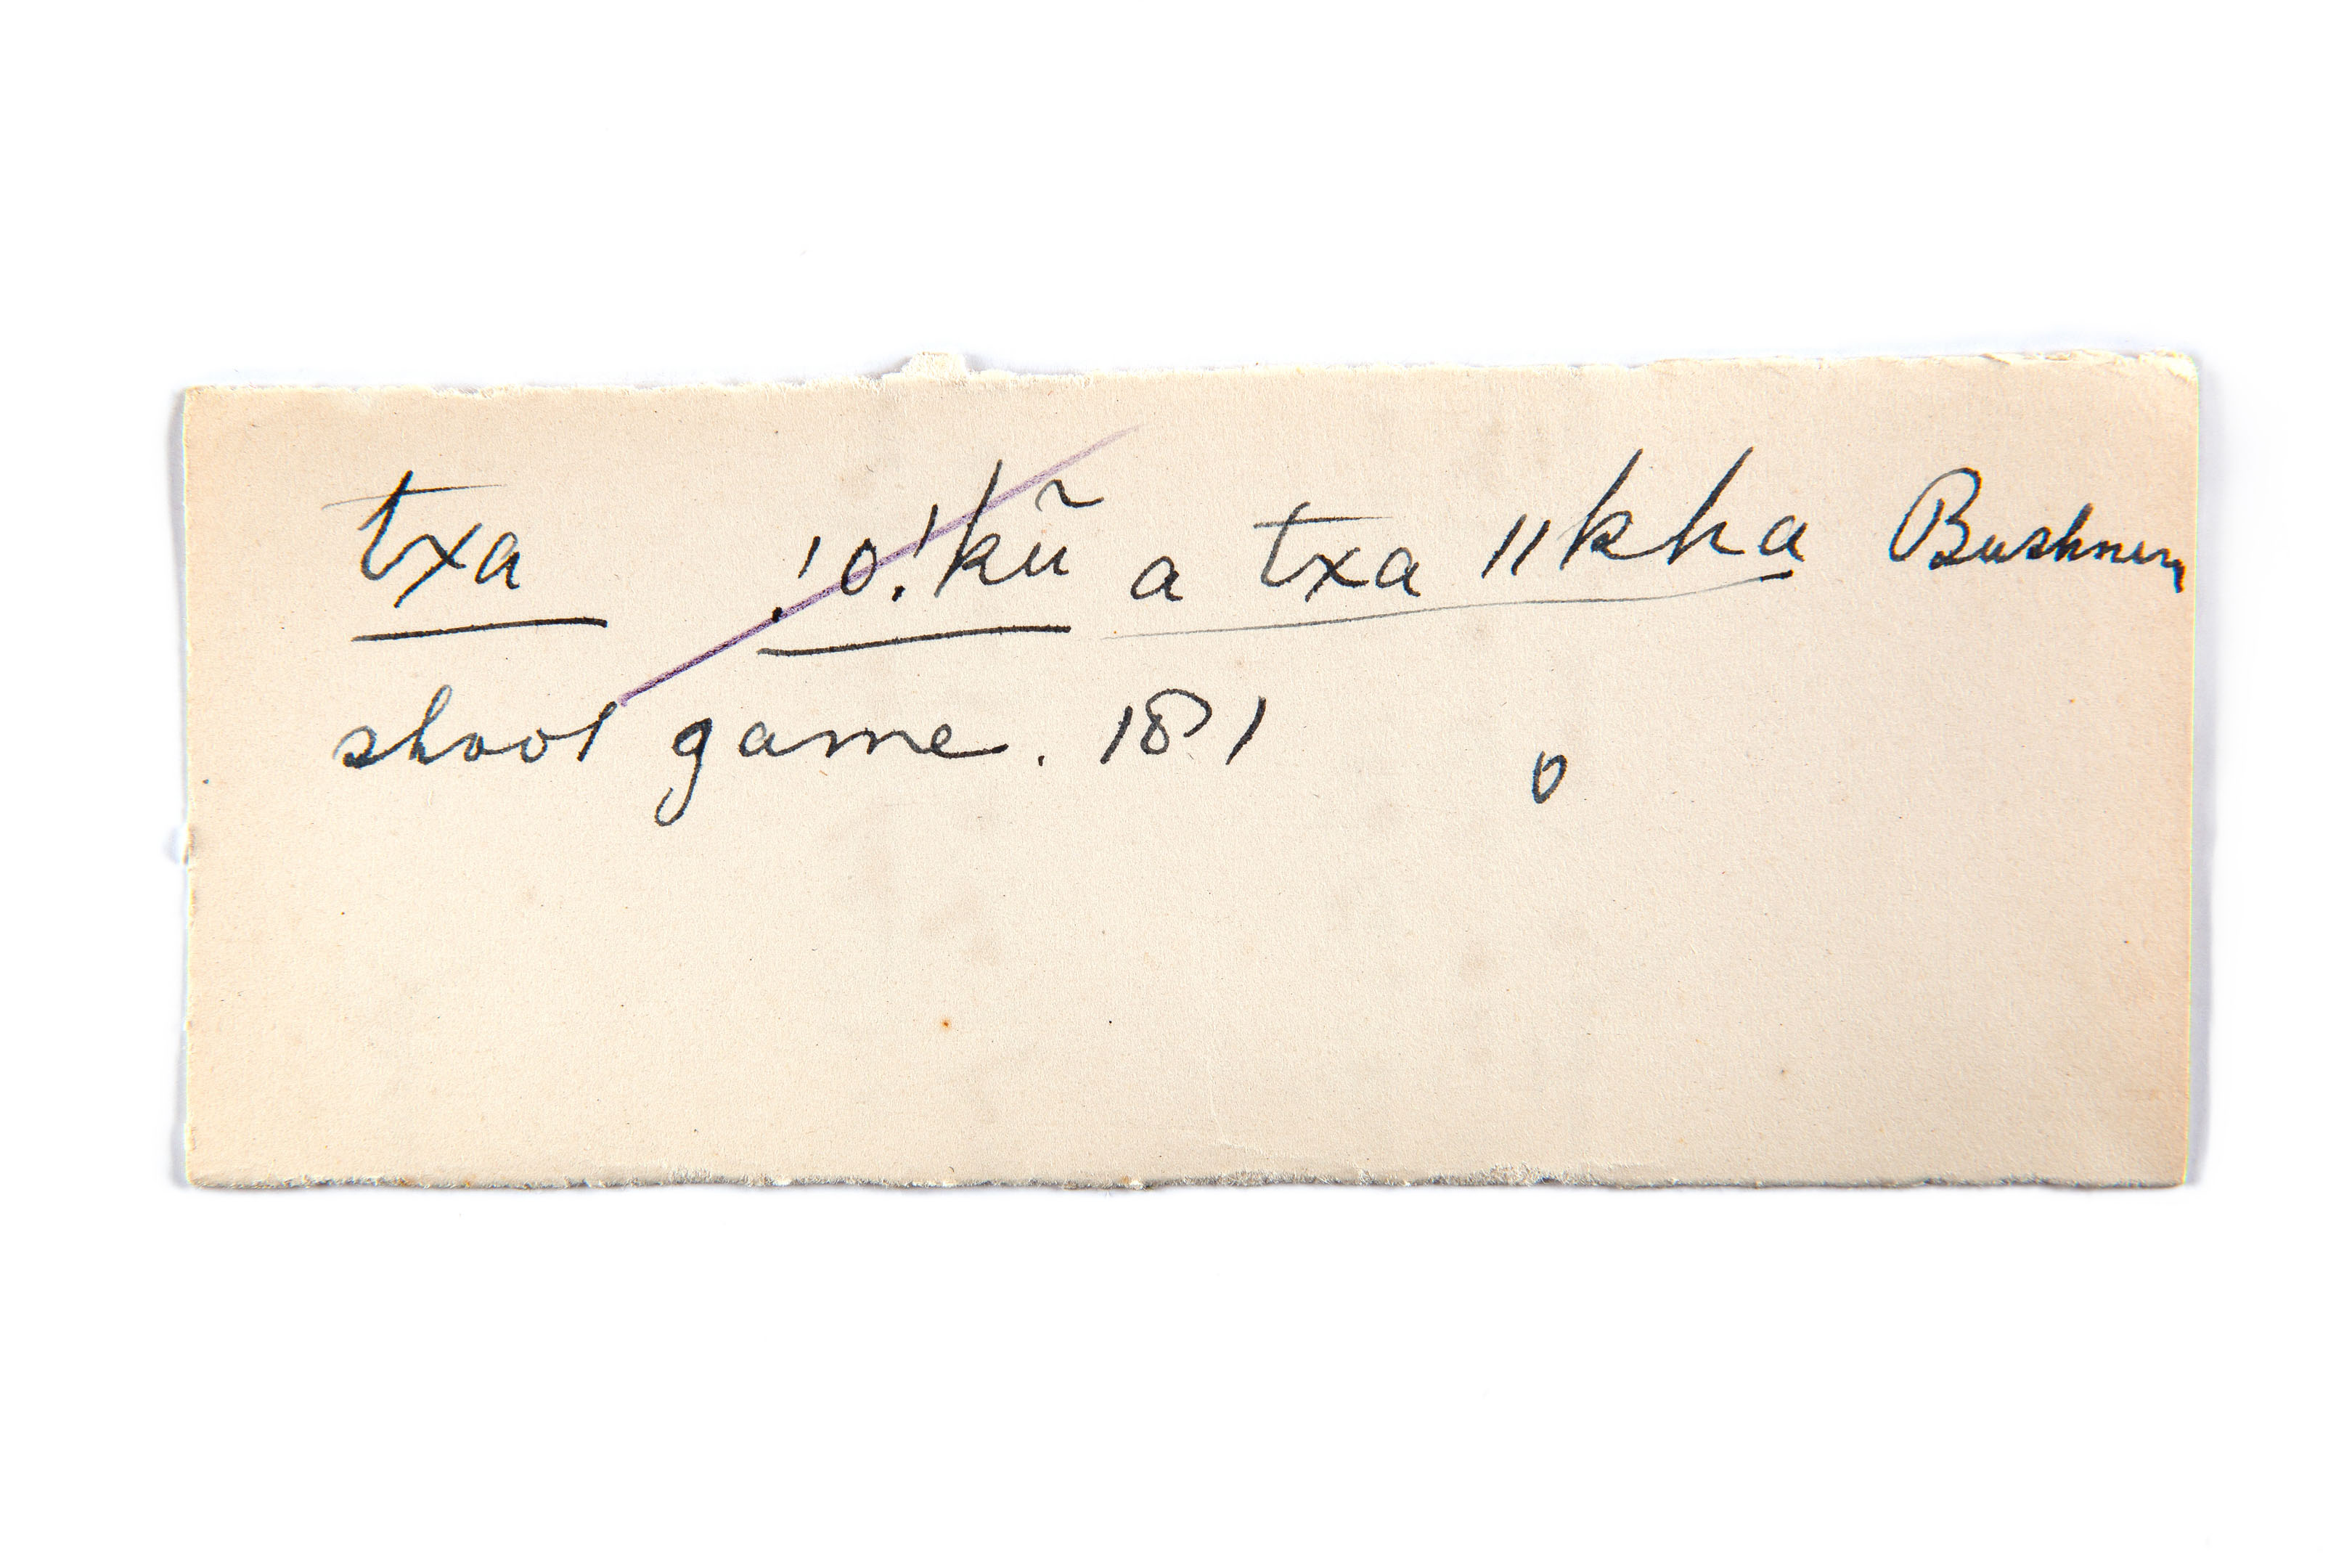 txa !o!kũ a txa ǁkha Bushmen
shoot game. 181
o